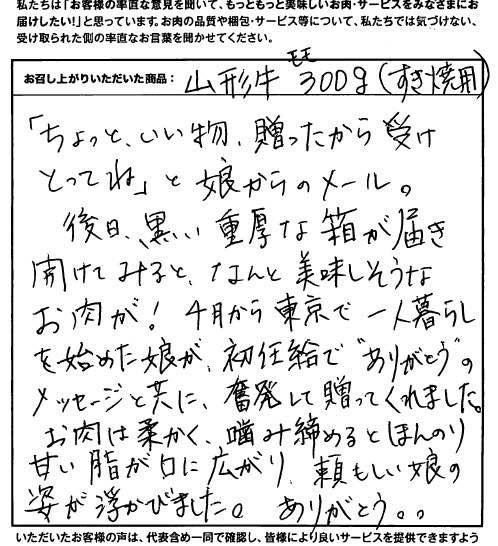 私たちは「お客様の率直な意見を聞いて、もっともっと美味しいお肉・サービスをみなさまにお
届けしたい!」と思っています。お肉の品質や梱包・サービス等について、私たちでは気づけない、
受け取られた側の率直なお言葉を聞かせてください。
お召し上がりいただいた商品: 山形牛モモ300g(すき焼用)
「ちょっと、いい物、贈ったから受け
とってね」と娘からのメール。
後日、黒い重厚な箱が届き
開けてみると、なんと美味しそうな
お肉が! 4月から東京で一人暮らし
を始めた娘が、初任給で"ありがとう"の
メッセージと共に、奮発して贈ってくれました。
お肉は柔かく、噛み締めるとほんのり
甘い脂が口に広がり、頼もしい娘の
姿が浮かびました。 ありがとう。。
いただいたお客様の声は、代表含め一同で確認し、皆様により良いサービスを提供できますよう